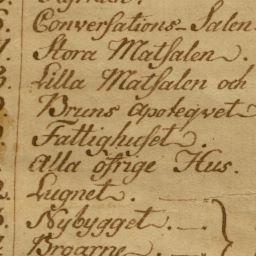 Conversations-Salen
Stora Matsalen.
Lilla Matsalen och
Bruns Apoteqvet
Fattighuset.
Alla öfrige Hus.
Lugnet.
Nybygget.
Broarne